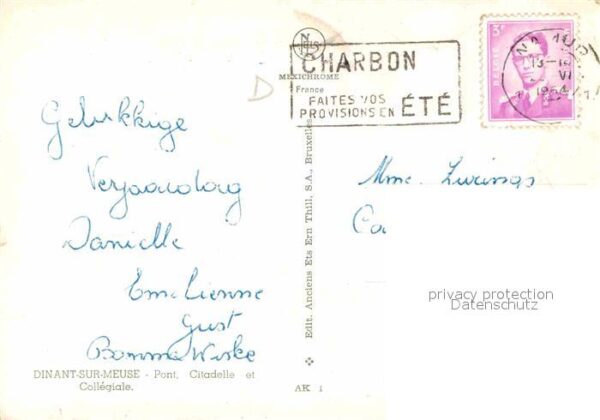 Gelukkige
Verjaardag
Danielle
Emilienne
Gust
Bomma Wiske
DINANT-SUR-MEUSE - Pont, Citadelle et
Collégiale.
MEXICHROME
France
CHARBON
FAITES VOS
PROVISIONS EN ÉTÉ
Edit. Anciens Ets Ern Thill, S.A., Bruxelles
AK 1
3F
NAMUR
VI
1964
Mme.
privacy protection
Datenschutz